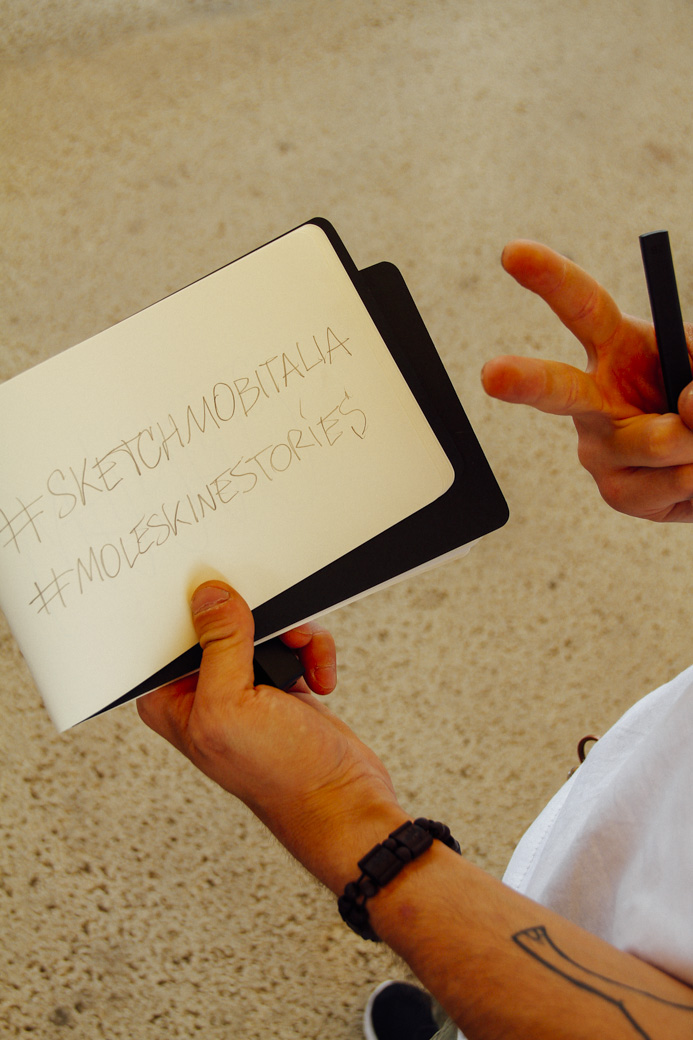 #SKETCHMOBITALIA
#MOLESKINESTORIES